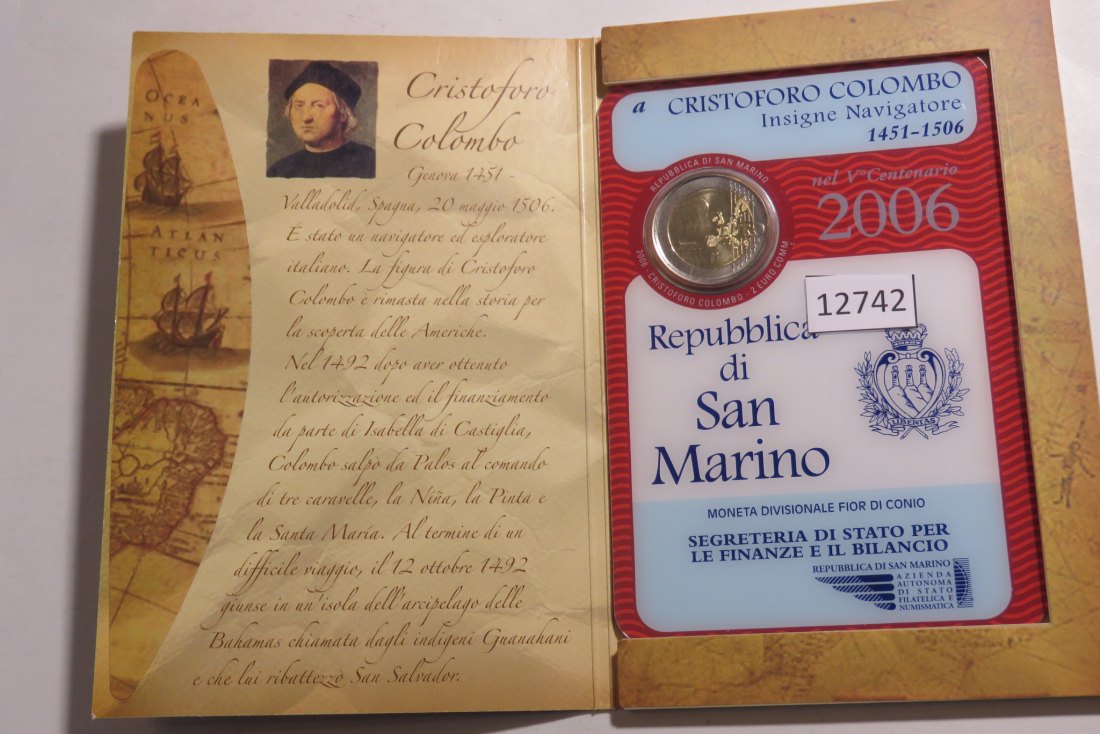 OCEA
NUS
ATLAN
TICUS
Cristoforo
Colombo
Genova 1451 -
Valladolid, Spagna, 20 maggio 1506.
È stato un navigatore ed esploratore
italiano. La figura di Cristoforo
Colombo è rimasta nella storia per
la scoperta delle Americhe.
Nel 1492 dopo aver ottenuto
l'autorizzazione ed il finanziamento
da parte di Isabella di Castiglia,
Colombo salpò da Palos al comando
di tre caravelle, la Niña, la Pinta e
la Santa María. Al termine di un
difficile viaggio, il 12 ottobre 1492
giunse in un'isola dell'arcipelago delle
Bahamas chiamata dagli indigeni Guanahani
e che lui ribattezzò San Salvador.
a CRISTOFORO COLOMBO
Insigne Navigatore
1451-1506
nel V° Centenario
2006
REPUBBLICA DI SAN MARINO
2006 CRISTOFORO COLOMBO - 2 EURO COMM.
12742
Repubblica
di
San
Marino
LIBERTAS
MONETA DIVISIONALE FIOR DI CONIO
SEGRETERIA DI STATO PER
LE FINANZE E IL BILANCIO
REPUBBLICA DI SAN MARINO
AZIENDA
AUTONOMA
DI STATO
FILATELICA E
NUMISMATICA